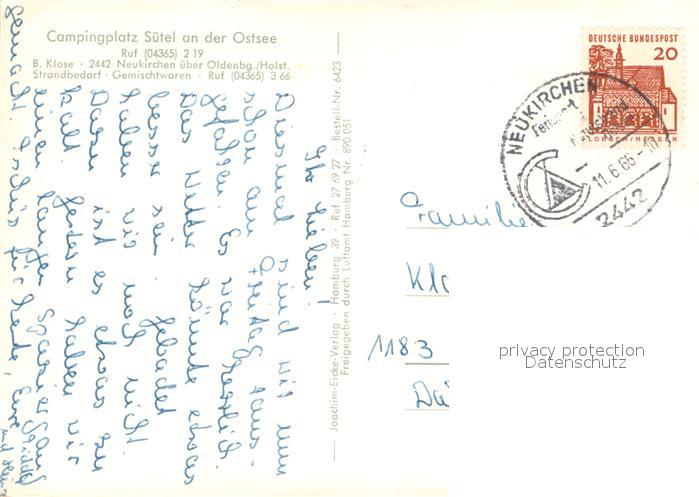 Campingplatz Sütel an der Ostsee
Ruf (04365) 2 19
B. Klose · 2442 Neukirchen über Oldenbg./Holst.
Strandbedarf · Gemischtwaren · Ruf (04365) 3 66
Ihr Lieben!
Diesmal sind wir nun
schon am Freitag raus-
gefahren. Es war herrlich.
Das Wetter könnte etwas
besser sein. gebadet
haben wir noch nicht.
Dazu ist es etwas zu
kalt. gestern haben wir
einen langen Spaziergang
gemacht. Tschüs für heute, Eure
und Heinz
Joachim-Eicke-Verlag · Hamburg 39 · Ruf 27 69 27 · Bestell-Nr. 6423
Freigegeben durch Luftamt Hamburg Nr. 890 051
DEUTSCHE BUNDESPOST
20
LORSCH/HESSEN
NEUKIRCHEN
11.6.66-10
2442
Familie
Klo
1183
privacy protection
Datenschutz